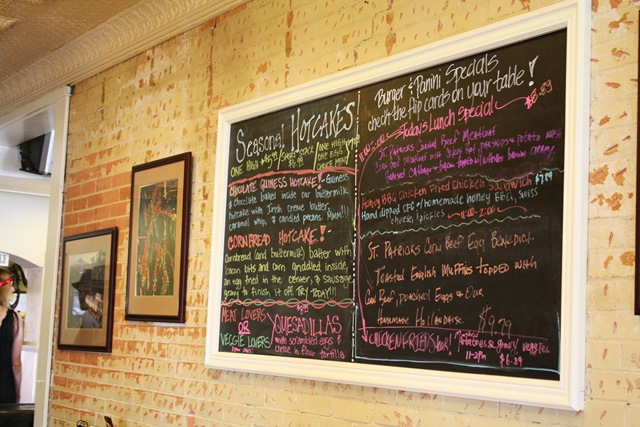 Seasonal HOTCAKES
ONE BIG
SHORT STACK
ONE HIGH
ONE EGG
CHOCOLATE GUINESS HOTCAKE! Guiness
& Chocolate baked inside our buttermilk
Hotcake with Irish creme butter,
caramel whip, & candied pecans. Mmm!!!
CORNBREAD HOTCAKE!
Cornbread (and buttermilk) batter with
bacon bits and corn griddled inside,
an egg fried in the center, & sausage
gravy to finish it off. TRY TODAY!!!
MEAT LOVERS
OR
VEGGIE LOVERS
QUESADILLAS
with scrambled eggs &
cheese in flour tortillas
Burger & Panini Specials
check the flip cards on your table!
Today's Lunch Special
$8.89
St. Patricks Corned Beef Meatloaf
Honey BBQ Chicken Fried Chicken Sandwich
Hand dipped CFC w/homemade honey BBQ, swiss
cheese, & pickles 11:00-2:00
St. Patricks Corn Beef Egg Benedict
Toasted English Muffins topped with
Corn Beef, poached Eggs & Our
Homemade Hollandaise
$9.79
CHICKEN FRIED
Potatoes & gravy/ veggies
11-2pm $8.89